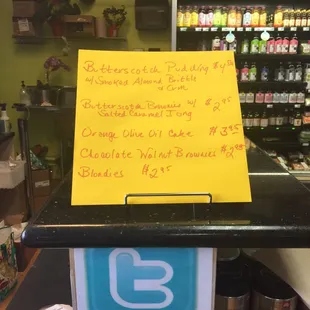 Butterscotch Pudding $4
w/ Smoked Almond Brittle
Butterscotch Brownies w/ $2.95
Salted Caramel Icing
Orange Olive Oil Cake $3.95
Chocolate Walnut Brownies $2.95
Blondies $2.95